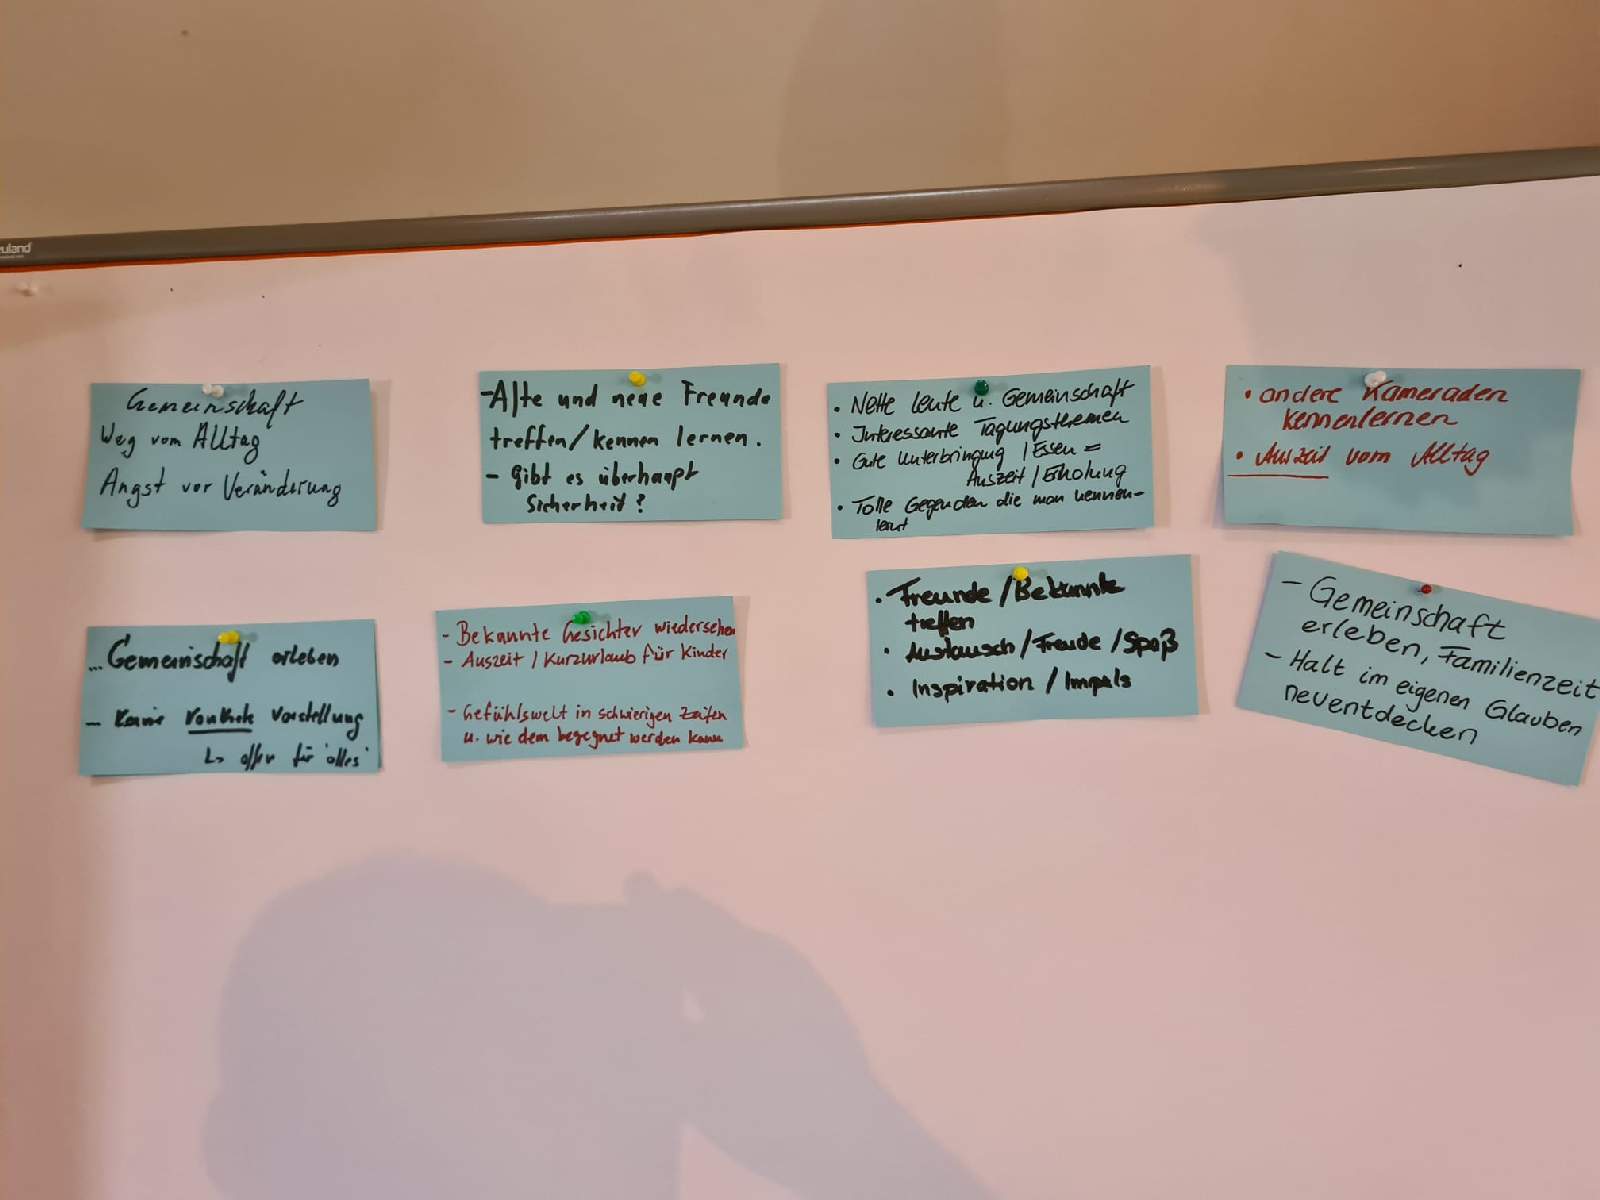 Gemeinschaft
Weg vom Alltag
Angst vor Veränderung
- Alte und neue Freunde
treffen/kennen lernen.
- Gibt es überhaupt
Sicherheit?
• Nette Leute u. Gemeinschaft
• Interessante Tagungsthemen
• Gute Unterbringung / Essen =
Auszeit / Erholung
• Tolle Gegenden die man kennen-
lernt
• andere Kameraden
kennenlernen
• Auszeit vom Alltag
... Gemeinschaft erleben
- Keine konkrete Vorstellung
↳ offen für "alles"
- Bekannte Gesichter wiedersehen
- Auszeit / Kurzurlaub für Kinder
- Gefühlswelt in schwierigen Zeiten
u. wie dem begegnet werden kann
• Freunde / Bekannte
treffen
• Austausch / Freude / Spaß
• Inspiration / Impuls
- Gemeinschaft
erleben, Familienzeit
- Halt im eigenen Glauben
neuentdecken